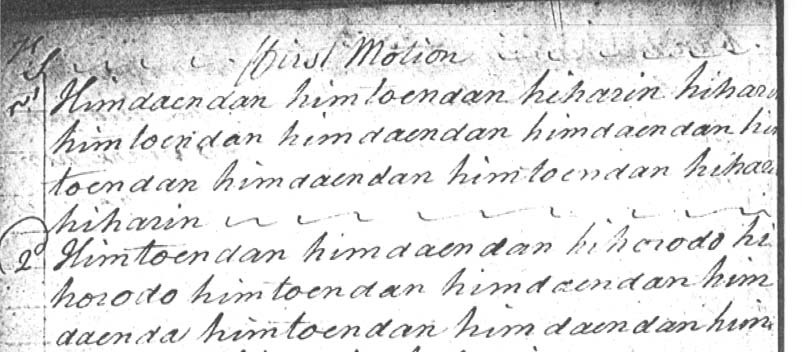 First Motion
1st Himdaendan himtoendan hiharin hiharin
himtoendan himdaendan himdaendan him
toendan himdaendan himtoendan hihari
hiharin
2d Himtoendan himdaendan hihorodo hi
horodo himtoendan himdaendan him
daenda himtoendan himdaendan him